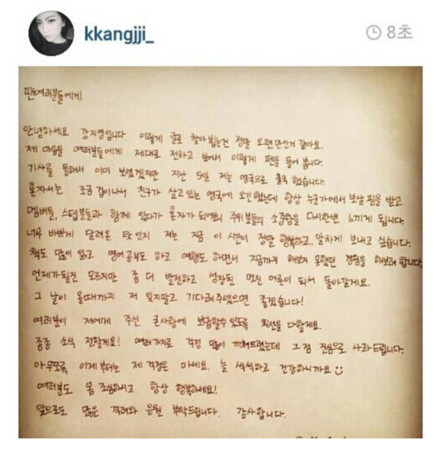 kkangjji_
8초
팬여러분들에게
안녕하세요 강지영입니다 이렇게 글로 찾아뵙는건 정말 오랜만인거 같아요.
제 마음을 여러분들에게 제대로 전하고 싶어서 이렇게 펜을 들어 봅니다.
기사를 통해서 이미 보셨겠지만 지난 5일 저는 영국으로 출국 했습니다.
혼자서는 조금 겁이나서 친구가 살고있는 영국에 오긴했는데 항상 누군가에서 보살핌을 받고
멤버들, 스텝분들과 함께 있다가 혼자가 되어보니 주위분들의 소중함을 다시한번 느끼게 됩니다.
너무 바쁘게 달려온 탓인지 저는 지금 이 시간이 정말 행복하고 알차게 보내고 싶습니다.
책도 많이 읽고 영어공부도 하고 여행도 하면서 지금까지 해보지 못했던 경험을 해보려 합니다.
언제가될진 모르지만 좀 더 발전하고 성장된 멋진 어른이 되서 돌아갈게요.
그 날이 올때까지 저 잊지말고 기다려주셨으면 좋겠습니다!
여러분이 저에게 주신 큰사랑에 보답할수 있도록 최선을 다할게요.
종종 소식 전할게요! 여러가지로 걱정 많이 끼쳐드렸는데 그점 진심으로 사과드립니다.
아무쪼록 이제부터는 제 걱정은 마세요. 늘 씩씩하고 건강하니까요
여러분도 몸 조심하시고 항상 행복하세요!
앞으로도 많은 격려와 응원 부탁드립니다. 감사합니다.